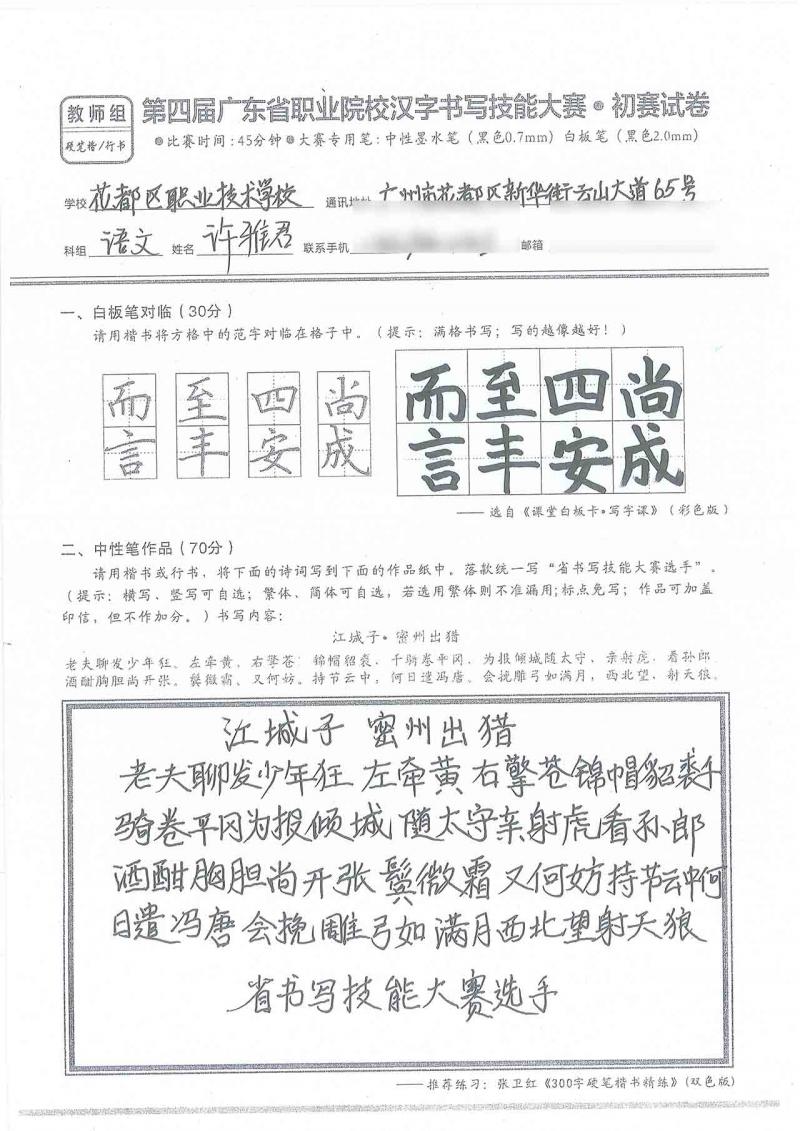 教师组
硬笔楷/行书
第四届广东省职业院校汉字书写技能大赛·初赛试卷
●比赛时间:45分钟●大赛专用笔:中性墨水笔(黑色0.7mm)白板笔(黑色2.0mm)
学校 花都区职业技术学校 通讯地址 广州市花都区新华街云山大道65号
科组 语文 姓名 许雅君 联系手机 邮箱
一、白板笔对临(30分)
请用楷书将方格中的范字对临在格子中。(提示:满格书写;写的越像越好!)
而 至 四 尚 而 至 四 尚
言 丰 安 成 言 丰 安 成
——选自《课堂白板卡·写字课》(彩色版)
二、中性笔作品(70分)
请用楷书或行书,将下面的诗词写到下面的作品纸中。落款统一写“省书写技能大赛选手”。
(提示:横写、竖写可自选;繁体、简体可自选,若选用繁体则不准漏用;标点免写;作品可加盖
印信,但不作加分。)书写内容:
江城子·密州出猎
老夫聊发少年狂、左牵黄,右擎苍 锦帽貂裘,千骑卷平冈、为报倾城随太守、亲射虎,看孙郎
酒酣胸胆尚开张。鬓微霜、又何妨。持节云中,何日遣冯唐。会挽雕弓如满月,西北望,射天狼。
江城子 密州出猎
老夫聊发少年狂 左牵黄 右擎苍 锦帽貂裘千
骑卷平冈为报倾城 随太守亲射虎看孙郎
酒酣胸胆尚开张 鬓微霜 又何妨持节云中何
日遣冯唐 会挽雕弓如满月西北望射天狼
省书写技能大赛选手
——推荐练习:张卫红《300字硬笔楷书精练》(双色版)